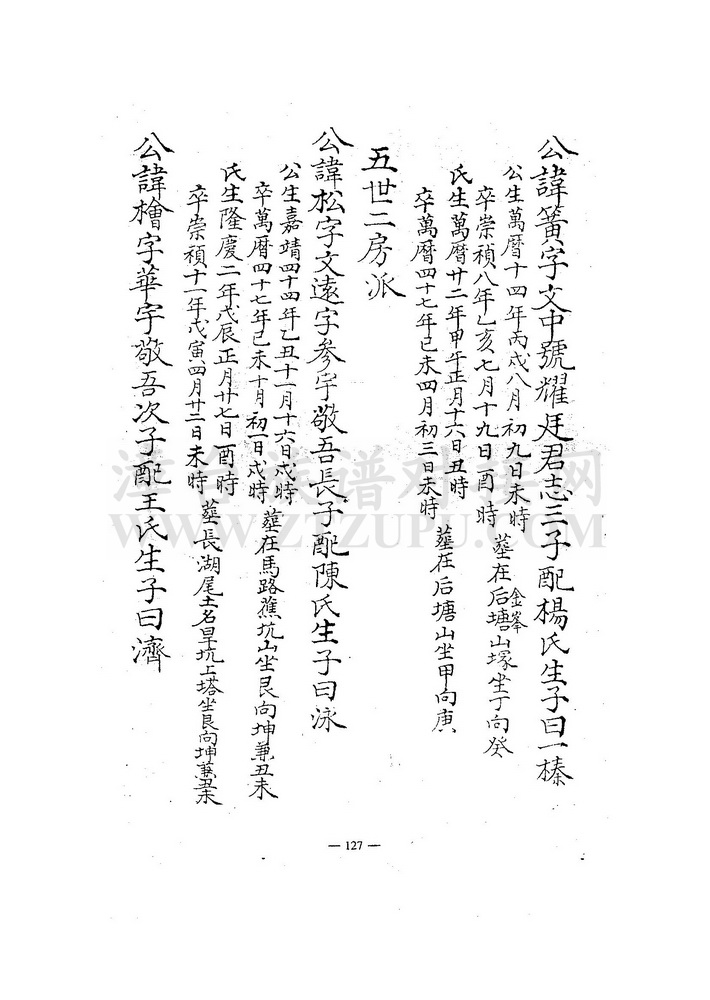 公諱簧字文中號耀廷君志三子配楊氏生子曰一榛
公生萬曆十四年丙戌八月初九日未時
卒崇禎八年乙亥七月十九日酉時 墓在后塘金峯山塚坐丁向癸
氏生萬曆廿二年甲午正月十六日丑時
卒萬曆四十七年己未四月初三日未時 墓在后塘山坐甲向庚
五世二房派
公諱松字文遠字參宇敬吾長子配陳氏生子曰泳
公生嘉靖四十四年乙丑十一月十六日戌時
卒萬曆四十七年己未十月初一日戌時 墓在馬路蕉坑山坐艮向坤兼丑未
氏生隆慶二年戊辰正月廿七日酉時
卒崇禎十一年戊寅四月廿二日未時 墓長湖尾土名旱坑上塔坐艮向坤兼丑未
公諱檜字華宇敬吾次子配王氏生子曰濟
漳台族谱对接网
WWW.ZTZUPU.COM
— 127 —